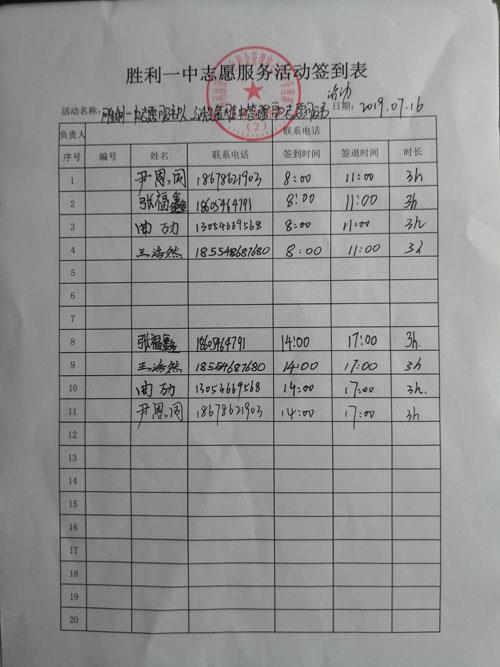 胜利一中志愿服务活动签到表
活动
活动名称: 胜利一中志愿服务队 日期: 2019.07.16
负责人 联系电话
序号 编号 姓名 联系电话 签到时间 签退时间 时长
1 尹恩润 18678621903 8:00 11:00 3h
2 张福鑫 18605464791 8:00 11:00 3h
3 曲劢 13054669568 8:00 11:00 3h
4 王浩然 18554868680 8:00 11:00 3h
5
6
7
8 张福鑫 18605464791 14:00 17:00 3h.
9 王浩然 18554867680 14:00 17:00 3h
10 曲劢 13054669568 14:00 17:00 3h.
11 尹恩润 18678621903 14:00 17:00 3h
12
13
14
15
16
17
18
19
20
(2)